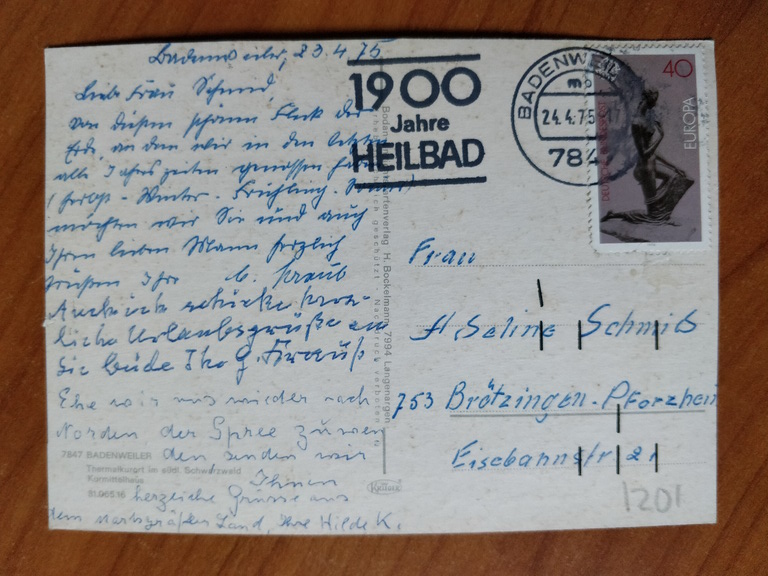 Badenweiler, 23.4.75
Liebe Frau Schmid,
von diesem schönen Fleck der
Erde, an dem wir in den letzten
alle Jahreszeiten genossen haben
(Herbst - Winter - Frühling - Sommer)
möchten wir Sie und auch
Ihren lieben Mann herzlich
grüßen Ihre
Auch ich schicke herz-
liche Urlaubsgrüße an
Sie beide Ihr
Ehe wir uns wieder nach
Norden der Spree zuwen
den senden wir
Ihnen
herzliche Grüsse aus
dem markgräfler Land, Ihre Hilde K.
7847 BADENWEILER
Thermalkurort im südl. Schwarzwald
Kurmittelhaus
Kartenverlag H. Bockelmann, 7994 Langenargen
geschützt. Nachdruck verboten
1900
Jahre
HEILBAD
BADENWEIL
24.4.75-17
784
40
EUROPA
DEUTSCHE BUNDESPOST
Frau
Seline Schmid
753 Brötzingen-Pforzheim
Eisebahnstr 21
1201